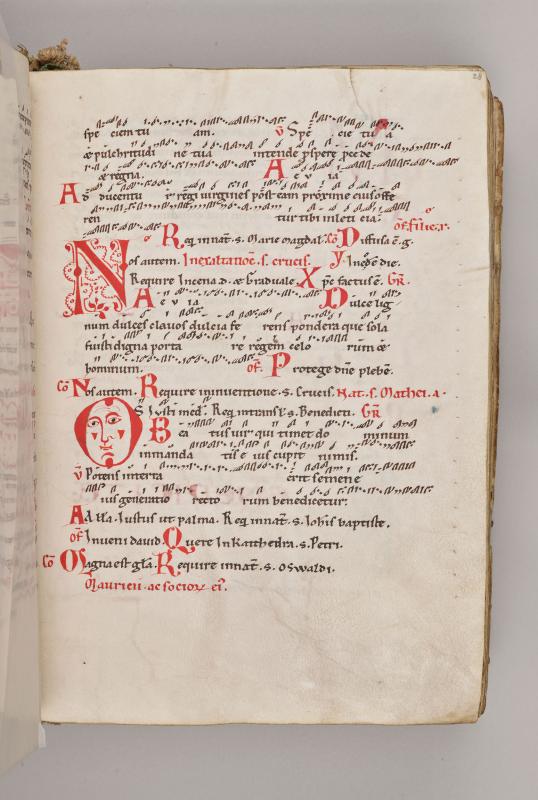 28
spe ciem tu am. v̄ Spē cie tu a
& pulchritudi ne tua intende pspere pcede
& regna. A e v ia
Ad ducentu r regi uirgines pōst eam proxime eius offe
ren tur tibi in leticia. of. filie. r.
Req. in nat̄. s. Marie magdal. Cō Diffusa ē. g.
Nos autem. In exaltatione. s. crucis. y. In ope die.
Require In cena. d. & Graduale. Xpe factus ē. GR̄.
A e v ia Dulce lig
num dulces clauos dulcia fe rens pondera que sola
fuisti digna porta re regem celo rum &
hominum. of. Protege dn̄e plebē.
Cō Nos autem. Require in inuentione. s. Crucis. Nat. s. Mathei. a.
OS Iusti med. Req. in transl. s. Benedicti. GR̄
Bea tus uir qui timet do minum
in manda tis e ius cupit nimis.
v̄ Potens in terra erit semen e
ius generatio recto rum benedicetur.
Ad Alla. Iustus ut palma. Req. in nat̄. s. Iohis baptiste.
of. Inueni dauid. Quere In kathedra. s. Petri.
Cō Magna est glā. Require in nat̄. s. Oswaldi.
Mauricii. ac socior ei.